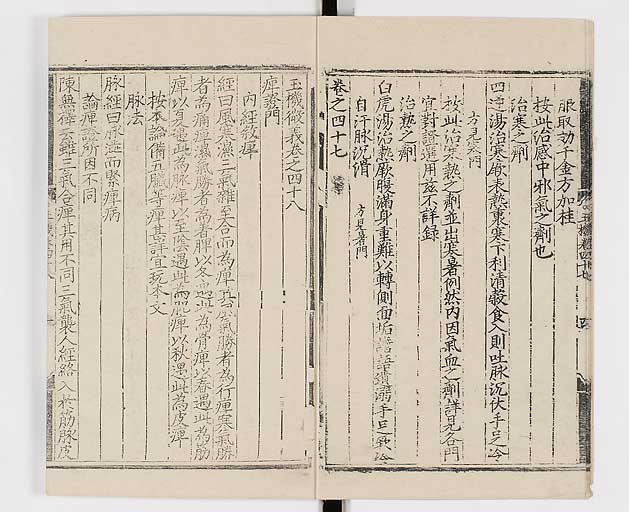 服取効千金方加桂
按此治感中邪氣之劑也
治寒之劑
四逆湯治寒厥表熱裏寒下利清穀食入則吐脉沉伏手足冷
方見寒門
按此治寒熱之劑並出寒暑例然内因氣血之劑詳見各門
宜對證選用茲不詳録
治熱之劑
白虎湯治熱厥腹滿身重難以轉側面垢譫語遺溺手足厥冷
自汗脉沉滑 方見暑門
卷之四十七
玉機微義卷之四十八
痺證門
内經敘痺
經曰風寒濕三氣雜至合而為痺其風氣勝者為行痺寒氣勝
者為痛痺濕氣勝者為著痺以冬遇此為骨痺以春遇此為筋
痺以夏遇此為脉痺以至陰遇此為肌痺以秋遇此為皮痺
按本論備五臟等痺其詳宜玩本文
脉法
脉經曰脉濇而緊痺病
論痺證所因不同
陳無擇云雖三氣合痺其用不同三氣襲人經絡入於筋脉皮